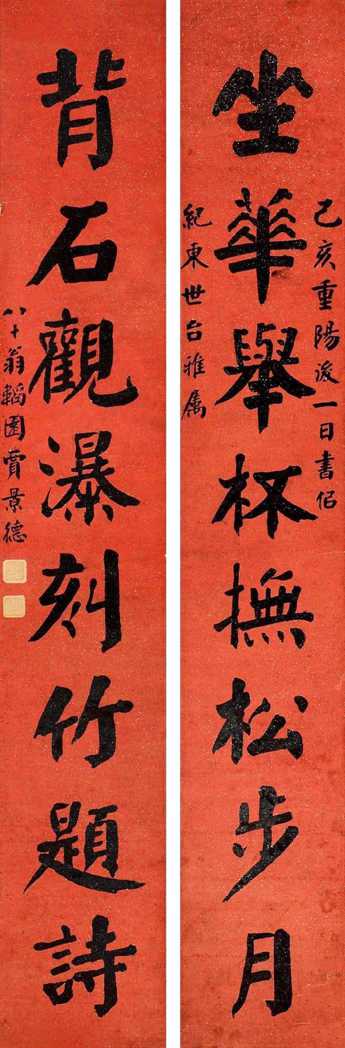 己亥重陽後一日書侣
坐華舉杯撫松步月
紀東世台雅属
背石觀瀑刻竹題詩
八十翁韜園賈景德